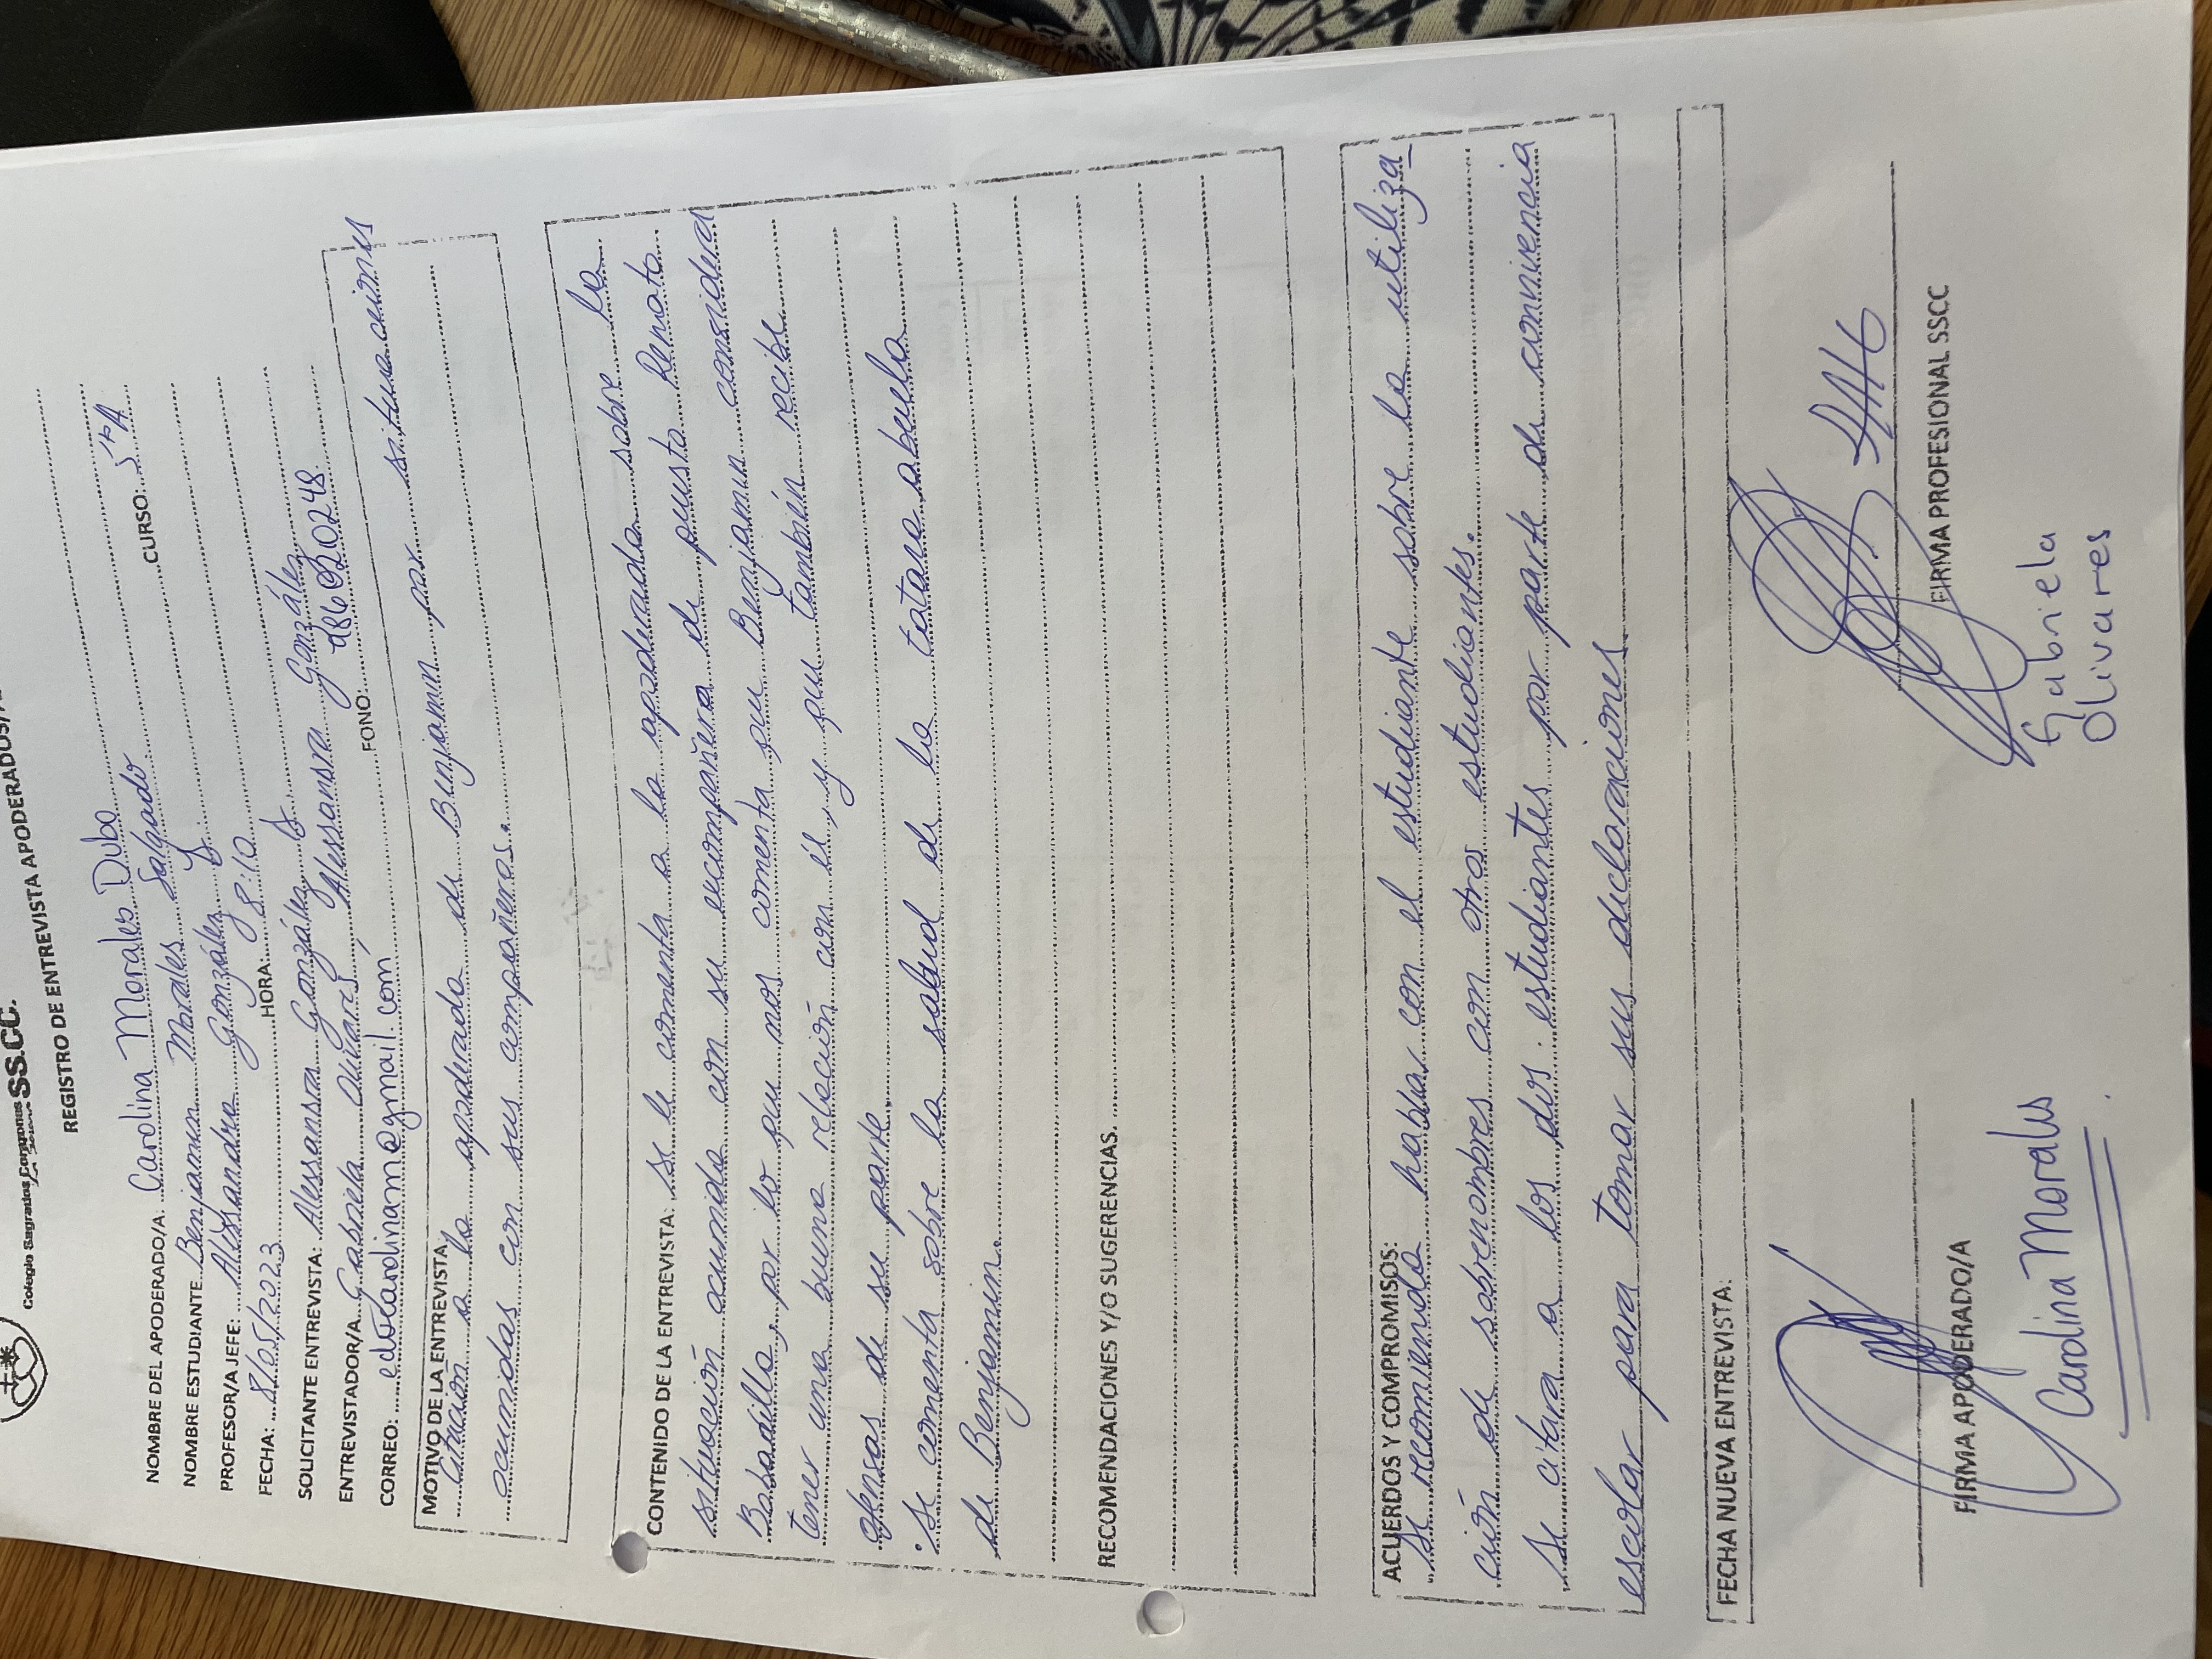 Colegio Sagrados Corazones SS.CC.
REGISTRO DE ENTREVISTA APODERADOS/
NOMBRE DEL APODERADO/A: Carolina Morales Dubo
NOMBRE ESTUDIANTE Benjamin Morales Salgado CURSO: 5°A
PROFESOR/A JEFE: Alessandra González
FECHA: 8/05/2023 HORA: 8:10
SOLICITANTE ENTREVISTA: Alessansra González
ENTREVISTADOR/A: Gabriela Olivares, Alessansra González
CORREO: @gmail.com FONO:
MOTIVO DE LA ENTREVISTA:
Citación a la apoderada de Benjamin por situaciones
ocurridas con sus compañeros.
CONTENIDO DE LA ENTREVISTA: Se le comenta a la apoderada sobre la
situación ocurrida con su excompañero de puesto Renato
Bobadilla, por lo que nos comenta que Benjamin considera
tener una buena relación con él, y que también recibe
ofensas de su parte.
• Se comenta sobre la salud de la tatara abuela
de Benjamin.
RECOMENDACIONES Y/O SUGERENCIAS.
ACUERDOS Y COMPROMISOS:
Se recomienda hablar con el estudiante sobre la utiliza
ción de sobrenombres con otros estudiantes.
Se citara a los dos estudiantes por parte de convivencia
escolar para tomar sus declaraciones
FECHA NUEVA ENTREVISTA:
FIRMA APODERADO/A
Carolina Morales
FIRMA PROFESIONAL SSCC
Gabriela
Olivares